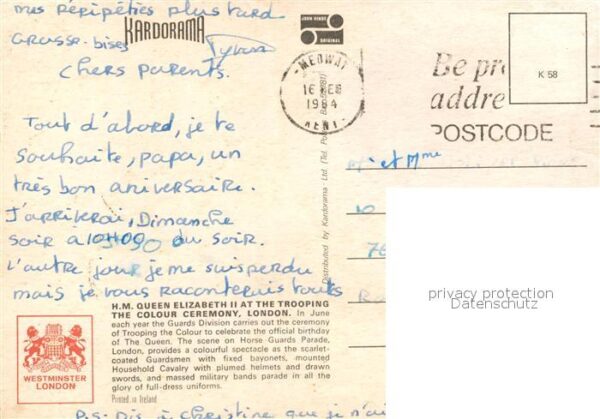 mes péripéties plus tard
Grosse bises
KARDORAMA
JOHN HINDE
ORIGINAL
MEDWAY
16 FEB
1984
KENT
Be pr
addre
POSTCODE
K 58
Chers parents.
Tout d'abord, je te
souhaite, papa, un
très bon aniversaire.
J'arriverai, Dimanche
soir à du soir.
L'autre jour je me suis perdu
mais je vous raconterais touts
M. et Mme
Distributed by Kardorama Ltd. (Tel. Po
privacy protection
Datenschutz
H.M. QUEEN ELIZABETH II AT THE TROOPING
THE COLOUR CEREMONY, LONDON. In June
each year the Guards Division carries out the ceremony
of Trooping the Colour to celebrate the official birthday
of The Queen. The scene on Horse Guards Parade,
London, provides a colourful spectacle as the scarlet-
coated Guardsmen with fixed bayonets, mounted
Household Cavalry with plumed helmets and drawn
swords, and massed military bands parade in all the
glory of full-dress uniforms.
Printed in Ireland
WESTMINSTER
LONDON
P.S. Dis à Christine que je n'ai